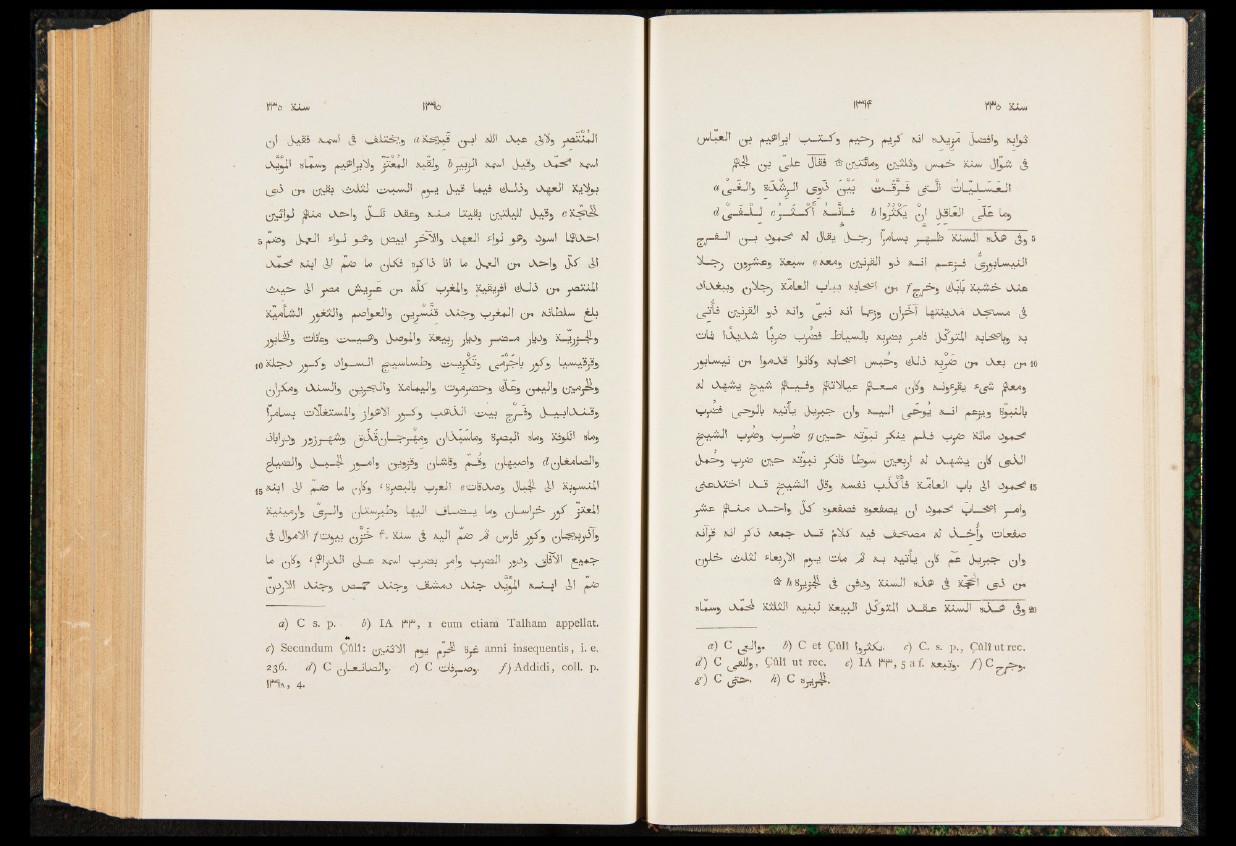 سنة ٢٣٥ ١٣٩۴
ثوابه وافضل مزيده انه كريم رحيم وكتب ابراهيم بن العباس
فى شوال سنة خمس وثلثين ومائتين ۞ فقال علىّ بن الجَهْم
العَسَليّات الّتى فَرَّقَتْ بَيْنَ ذَوِى الرِّشْدةِ والغَىِّ a
وما عَلَى العاقِلِ أنْ يَكْثُروا b فانّه أكْثَرُ c لِلْفَىِّ d
وفى هذه السنة ظهر بسامرّا رجل يقال له محمود بن الفرج 5
النيسابورىّ فزعم انه ذو القرنين ومعه e سبعة وعشرون رجلا
عند خشبة بابَك وخرج f من اصحابه بباب العامّة رجلان وببغداد
فى مسجد مدينتها آخران وزعما انه نبىّ وانه ذو القرنين فأتى
به وباصحابه المتوكّل فامر بضربه بالسياط فضُرب ضربًا شديدا فمات
من بعد من ضَرْبه ذلك وحُبس اصحابه وكانوا قدموا من نيسابور 10
ومعهم شىء يقرءونه وكان معهم عيالاتهم وفيهم شيخ يشهد له
بالنبوّة ويزعم انه يُوحَى اليه وان جبريل يأتيه بالوحى فضُرب
محمود مائة ضرب فلم ينكر نبوّته حين g ضُرب وضُرب الشيخ
الذى كان يشهد له اربعين سوطا فانكر نبوّته حين ضرب وحُمل
محمود الى باب العامّة فأَكْذب نفسه وقال الشيخ قد اختدعنى 15
وامر اصحاب محمود ان يصفعوه فصفعوه كل واحد منهم عشر
صفعات وأُخذ له مصحف فيه كلام قد جمعه ذكر انه قرآنه
وان جبريل عم كان يأتيه به ثم مات يوم الاربعاء لثلث خلون
من ذى الحجّة فى هذه السنة ودفن فى الجزيرة h ۞
وفى هذه السنة عقد المتوكّل البيعة لبنيه الثلثة لمحمّد وسمّاه 20
a) C والعى. b) C et Çûlî يكثروا. c) C. s. p., Çûlî ut rec.
d) C وللقى, Çûlî ut rec. e) IA ٣٣, 5 a f. وتبعه. f) C وجرح.
g) C حتى. h) C الجريره.
سنة ٢٣٥ ١٣٩٥
المُنْتَصِر ولأبى عبد الله ابن قَبيحة a ويختلف فى اسمه فقيل ان
اسمه محمّد وقيل اسمه الزبير b ولقبه المُعْتَزّ ولابراهيم وسمّاه المُؤَيّد
بولاية العهد وذلك فيما قيل يوم السبت لثلث بقين من ذى
الحجّة c وقيل لليلتين بقيتا منه وعقد لكلّ واحد منهم لوائين
احدهما اسود وهو لواء العهد والآخر ابيض وهو لواء العمل وضمّ 5
الى كلّ واحد من العمل ما انا ذاكره فكان ما ضمّ الى ابنه محمّد
المنتصر من ذلك افريقية والمغرب كلّه من عَريش مصر الى حيث
بلغ سلطانه من المغرب وجند قنّسرين والعواصم والثغور الشأميّة
والجزريّة وديار مضر وديار ربيعة والموصل وهيت وعانات والخابور
وقرقيسيا وكور باجَرْمَى وتكريت وطساسيج السواد وكور دجلة 10
والحرمين واليمن وعكّ وحضرموت واليمامة والبحرين والسند ومكران
وقندابيل وفرج بيت الذهب وكور الاهواز والمستغلّات بسامرّا
وماه الكوفة وماه البصرة وماسَبَذان ومِهْرجانقَذَق وشهرزور ودراباذ
والصامغان d واصبهان وقمّ وقاشان وقزوين وامور الجبل والضياع
المنسوبة الى الجبال وصدقات e العرب بالبصرة، وكان ما ضمّ الى ابنه 15
المعتزّ كور خراسان وما يضاف اليها وطبرستان والرىّ وارمينية
وآذربيجان وكور فارس ثم ضمّ اليه فى سنة ۴٠ خَزْن بيوت f الاموال فى
جميع الآفاق ودور الضرب وامر بضرب اسمه على الدراهم، وكان ما
ضمّ الى ابنه المؤيّد جند دمشق وجند حمص وجند الاردنّ
a) C s. p. b) IA ٣٣, 1 cum etiam Talham appellat.
c) Secundum Çûlî: يوم الاثنين غرة المحرّم anni insequentis, i. e.
236. d) C والصانعان. e) C وصرفات. f) Addidi, coll. p.
١٣٩٨, 4.